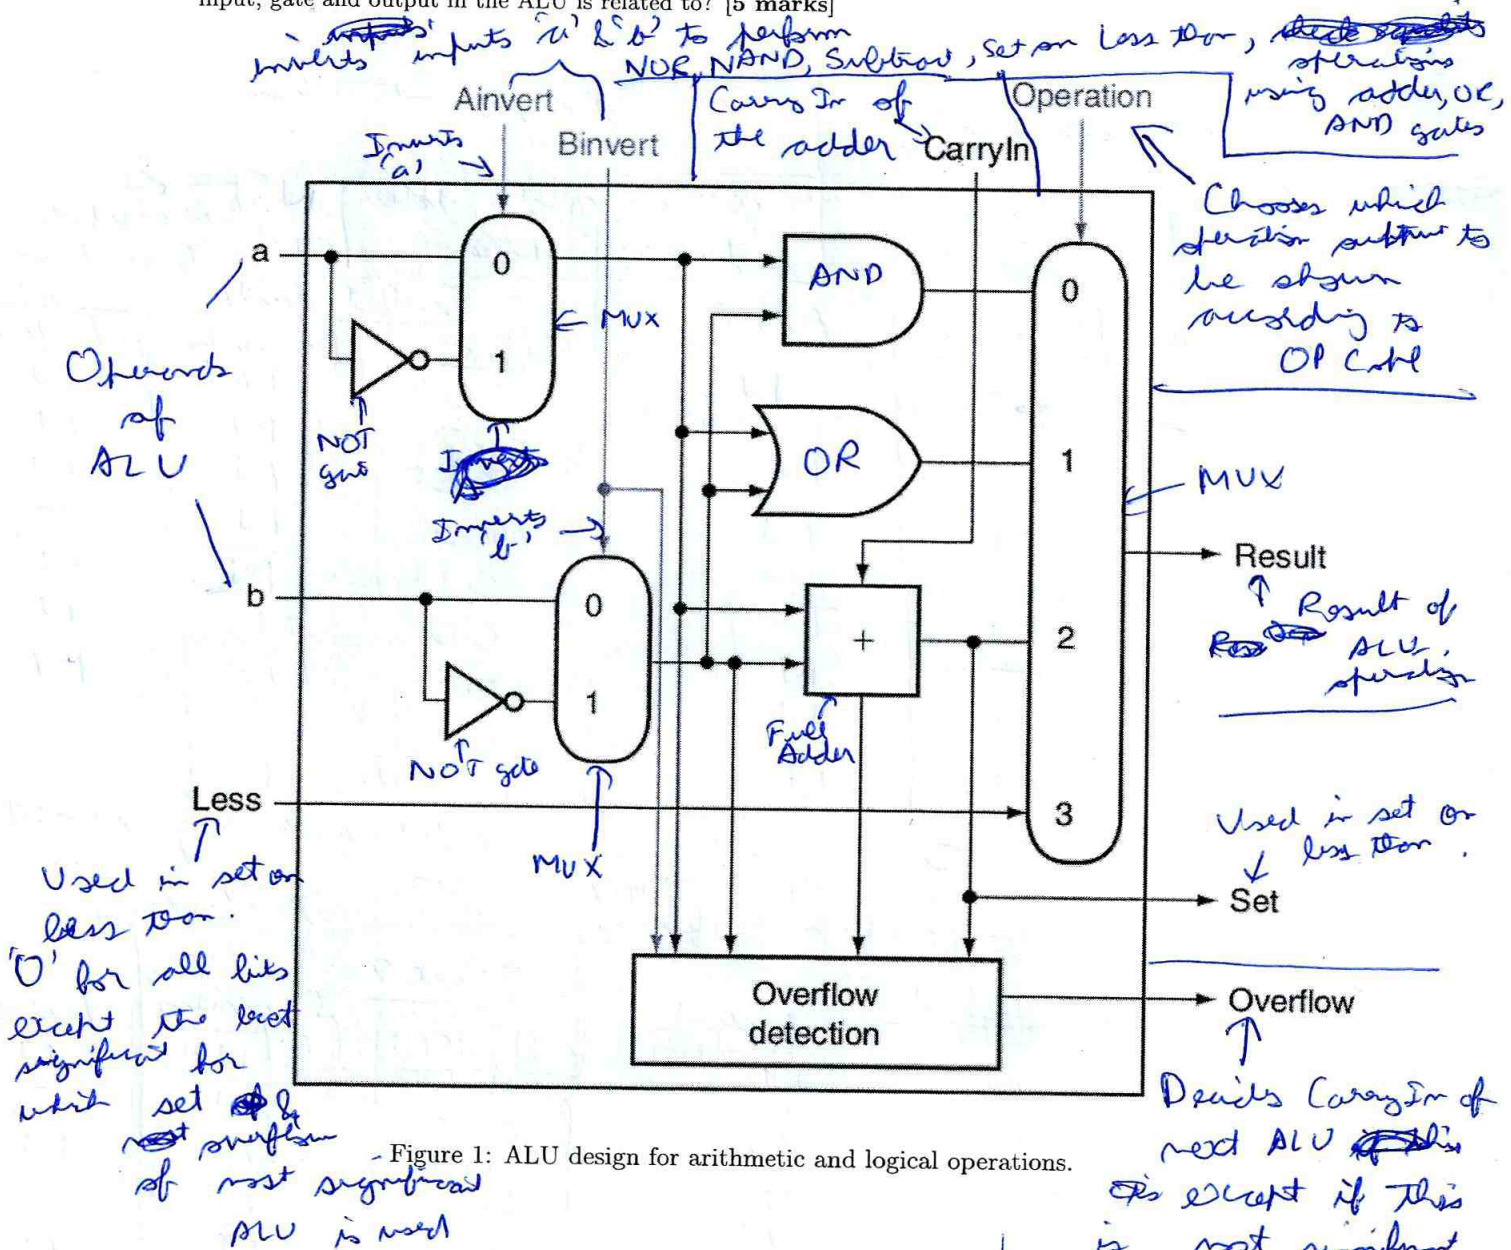 input, gate and output in the ALU is related to? [5 marks]
inverts inputs 'a' & 'b' to perform
NOR, NAND, Subtract, Set on Less than,
operations
using adder, OR,
AND gates
Ainvert
Binvert
Carry In of
the adder
CarryIn
Operation
Inverts
'a'
Chooses which
operation output to
be shown
according to
OP Code
a
0
1
MUX
AND
0
Operands
of
ALU
NOT
gate
OR
1
MUX
Inverts
'b'
Result
Result of
ALU
operation
b
0
1
+
2
Full
Adder
NOT gate
MUX
Less
3
Used in set on
less than.
'0' for all bits
except the least
significant for
which set &
overflow
of most significant
ALU is used
Used in set on
less than.
Set
Overflow
detection
Overflow
Decides CarryIn of
next ALU
except if this
is most significant
Figure 1: ALU design for arithmetic and logical operations.